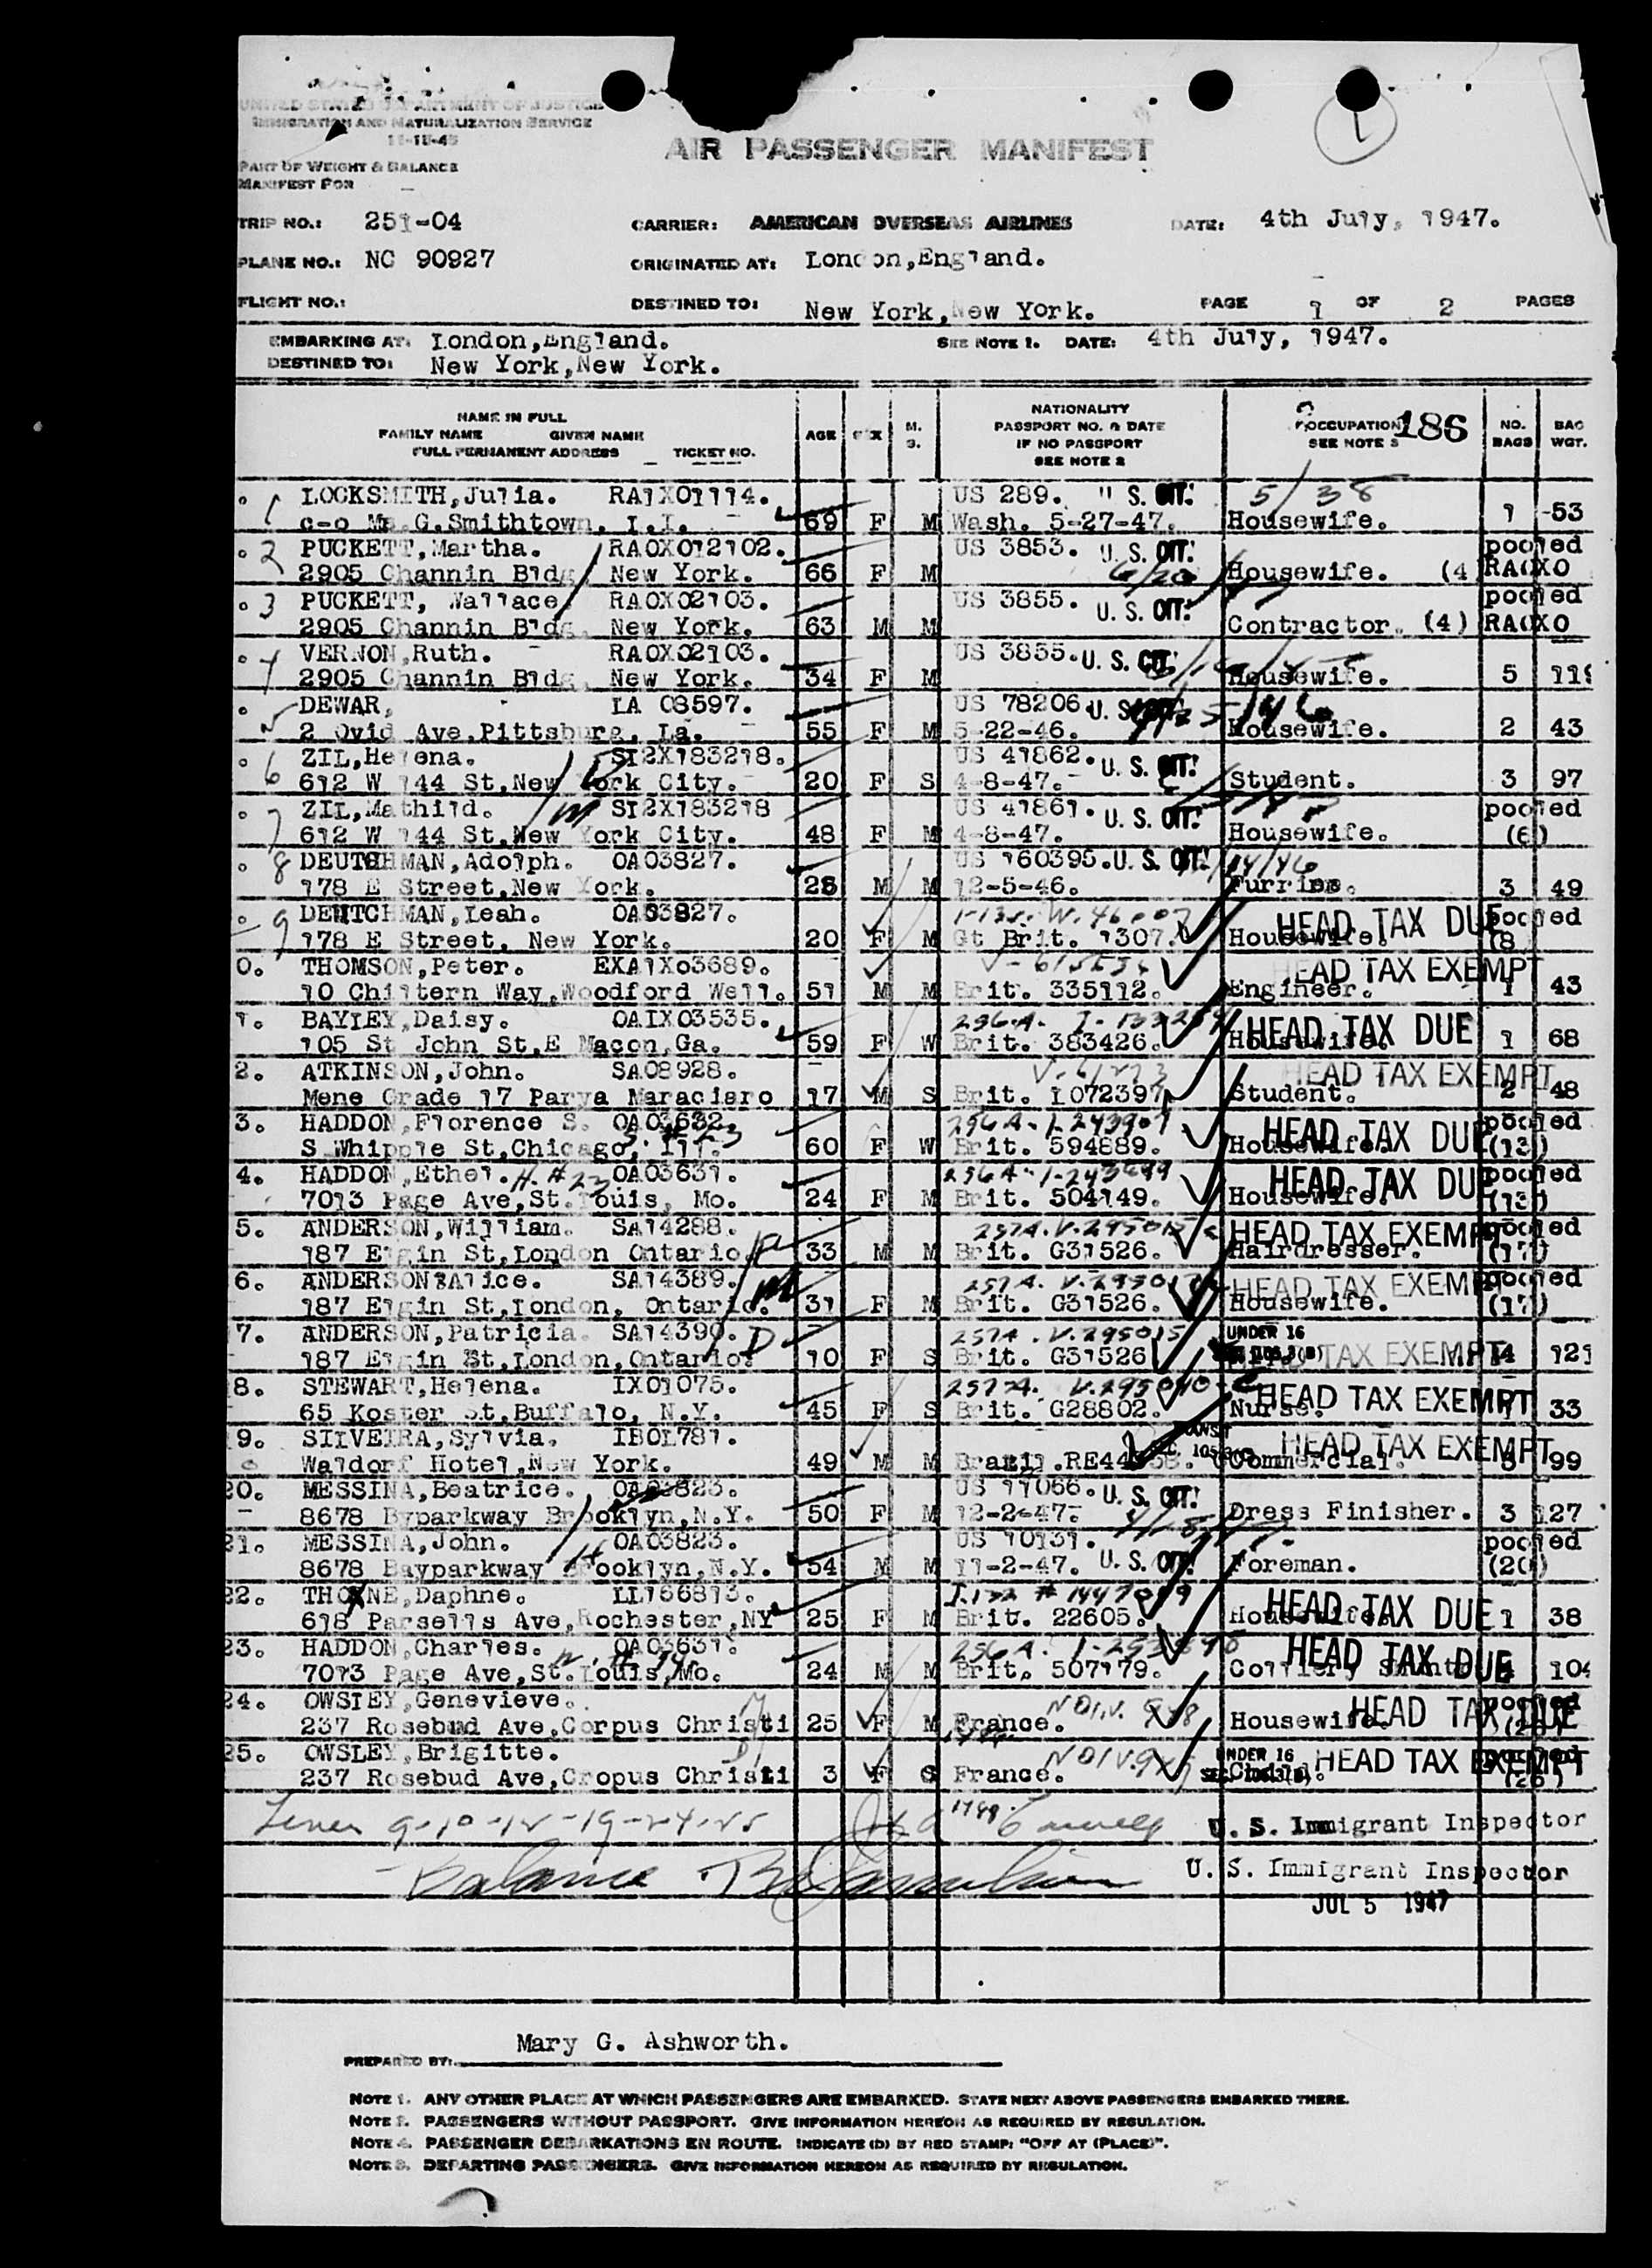 UNITED STATES DEPARTMENT OF JUSTICE
IMMIGRATION AND NATURALIZATION SERVICE
11-15-45
PART OF WEIGHT & BALANCE
MANIFEST FOR
AIR PASSENGER MANIFEST
1
TRIP NO.: 251-04 CARRIER: AMERICAN OVERSEAS AIRLINES DATE: 4th July, 1947.
PLANE NO.: NC 90927 ORIGINATED AT: London,England.
FLIGHT NO.: DESTINED TO: New York,New York. PAGE 1 OF 2 PAGES
EMBARKING AT: London,England. SEE NOTE 1. DATE: 4th July, 1947.
DESTINED TO: New York,New York.
NAME IN FULL
FAMILY NAME GIVEN NAME
FULL PERMANENT ADDRESS TICKET NO.
AGE SEX M. S.
NATIONALITY
PASSPORT NO. & DATE
IF NO PASSPORT
SEE NOTE 2
OCCUPATION 186
SEE NOTE 3
NO. BAGS
BAG WGT.
1 LOCKSMITH,Julia. RA1X01114. US 289. U. S. CIT. 5/38
c-o Mr.G.Smithtown, I.I. 69 F M Wash. 5-27-47. Housewife. 1 53
2 PUCKETT,Martha. RAOX012102. US 3853. U. S. CIT. pooled
2905 Channin Bldg, New York. 66 F M 6/20 Housewife. (4 RAOXO
3 PUCKETT, Wallace. RAOX02103. US 3855. U. S. CIT. pooled
2905 Channin Bldg, New York. 63 M M Contractor. (4) RAOXO
4 VERNON,Ruth. RAOX02103. US 3855. U. S. CIT.
2905 Channin Bldg, New York. 34 F M Housewife. 5 119
5 DEWAR, LA 08597. US 78206. U. S. CIT.
2 Ovid Ave,Pittsburg, La. 55 F M 5-22-46. Housewife. 2 43
6 ZIL,Helena. SI2X183218. US 41862. U. S. CIT.
612 W 144 St,New York City. 20 F S 4-8-47. Student. 3 97
7 ZIL,Mathild. M SI2X183218 US 41861. U. S. CIT. pooled
612 W 144 St,New York City. 48 F M 4-8-47. Housewife. (6)
8 DEUTCHMAN,Adolph. OA03827. US 160395. U. S. CIT.
178 E Street,New York. 28 M M 12-5-46. Furrier. 3 49
9 DEUTCHMAN,Leah. OA03827. HEAD TAX DUE pooled
178 E Street, New York. 20 F M Gt Brit. 1307. Housewife. (8
0. THOMSON,Peter. EXA1Xo3689. HEAD TAX EXEMPT
10 Chiltern Way,Woodford Well. 51 M M Brit. 335112. Engineer. 1 43
1. BAYLEY,Daisy. OAIX03535. HEAD TAX DUE
105 St John St,E Macon,Ga. 59 F W Brit. 383426. Housewife. 1 68
2. ATKINSON,John. SA08928. HEAD TAX EXEMPT
Mene Grade 17 Parya Maraciaro 17 M S Brit. L072397. Student. 2 48
3. HADDON,Florence S. OA03632. 256A-1-243901 HEAD TAX DUE pooled
S Whipple St,Chicago, Ill. 60 F W Brit. 594889. Housewife. (13)
4. HADDON,Ethel. H.#23 OA03631. HEAD TAX DUE pooled
7013 Page Ave,St.Louis, Mo. 24 F M Brit. 504149. Housewife. (13)
5. ANDERSON,William. SA14288. 257A.V.295015 HEAD TAX EXEMPT pooled
187 Elgin St,London Ontario. 33 M M Brit. G31526. Hairdresser. (17)
6. ANDERSON,Alice. SA14389. HEAD TAX EXEMPT pooled
187 Elgin St,London, Ontario. M 31 F M Brit. G31526. Housewife. (17)
7. ANDERSON,Patricia. SA14390. D 257A.V.295015 UNDER 16 HEAD TAX EXEMPT
187 Elgin St,London,Ontario. 10 F S Brit. G31526 4 121
8. STEWART,Helena. IX01075. 257A. V.295010 HEAD TAX EXEMPT
65 Koster St,Buffalo, N.Y. 45 F S Brit. G28802. Nurse. 1 33
9. SILVEIRA,Sylvia. IBOL781. HEAD TAX EXEMPT
Waldorf Hotel,New York. 49 M M Brazil. Commercial. 99
20. MESSINA,Beatrice. OA03823. US 11066. U. S. CIT.
8678 Byparkway Brooklyn,N.Y. 50 F M 12-2-47. Dress Finisher. 3 127
21. MESSINA,John. OA03823. US 10131. U. S. CIT. pooled
8678 Bayparkway Brooklyn,N.Y. 54 M M 11-2-47. Foreman. (20)
22. THORNE,Daphne. LL166813. HEAD TAX DUE
618 Parsells Ave,Rochester,NY 25 F M Brit. 22605. Housewife. 1 38
23. HADDON,Charles. OA03631. HEAD TAX DUE
7013 Page Ave,St.Louis,Mo. 24 M M Brit. 507179. 104
24. OWSLEY,Genevieve. HEAD TAX DUE pooled
237 Rosebud Ave,Corpus Christi 25 F M France. Housewife.
25. OWSLEY,Brigitte. UNDER 16 HEAD TAX EXEMPT pooled
237 Rosebud Ave,Cropus Christi 3 F S France. Child. (26)
9-10-12-19-24-25 U. S. Immigrant Inspector
Balance U. S. Immigrant Inspector
JUL 5 1947
PREPARED BY: Mary G. Ashworth.
NOTE 1. ANY OTHER PLACE AT WHICH PASSENGERS ARE EMBARKED. STATE NEXT ABOVE PASSENGERS EMBARKED THERE.
NOTE 2. PASSENGERS WITHOUT PASSPORT. GIVE INFORMATION HEREON AS REQUIRED BY REGULATION.
NOTE 4. PASSENGER DEBARKATIONS EN ROUTE. INDICATE (D) BY RED STAMP: "OFF AT (PLACE)".
NOTE 3. DEPARTING PASSENGERS. GIVE INFORMATION HEREON AS REQUIRED BY REGULATION.